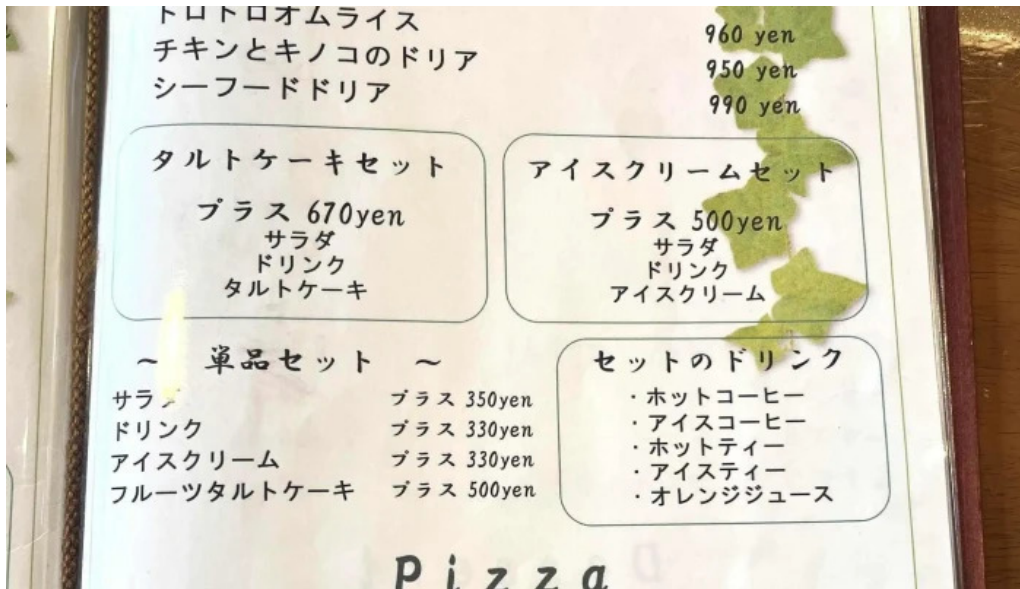 トロトロオムライス 960 yen
チキンとキノコのドリア 950 yen
シーフードドリア 990 yen
タルトケーキセット
プラス 670yen
サラダ
ドリンク
タルトケーキ
アイスクリームセット
プラス 500yen
サラダ
ドリンク
アイスクリーム
～ 単品セット ～
サラダ プラス 350yen
ドリンク プラス 330yen
アイスクリーム プラス 330yen
フルーツタルトケーキ プラス 500yen
セットのドリンク
・ホットコーヒー
・アイスコーヒー
・ホットティー
・アイスティー
・オレンジジュース
Pizza